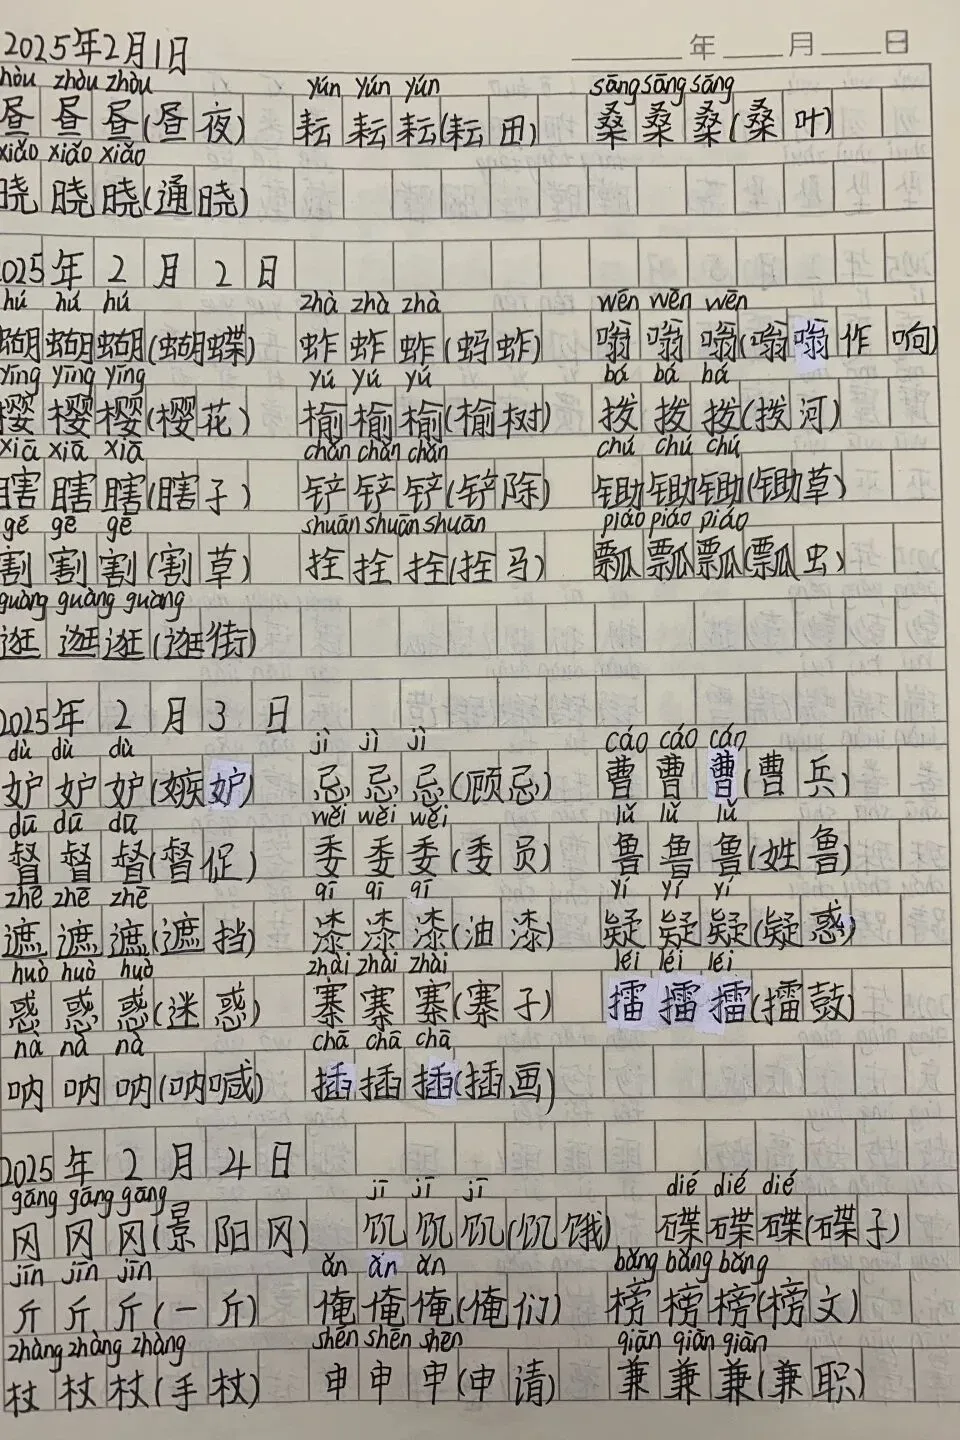 2025年2月1日 ____年____月____日
hòu zhòu zhòu yún yún yún sāng sāng sāng
昼昼昼(昼夜) 耘耘耘(耘田) 桑桑桑(桑叶)
xiǎo xiǎo xiǎo
晓晓晓(通晓)
2025年2月2日
hú hú hú zhà zhà zhà wēn wēn wēn
蝴蝴蝴(蝴蝶) 蚱蚱蚱(蚂蚱) 嗡嗡嗡(嗡嗡作响)
yīng yīng yīng yú yú yú bá bá bá
樱樱樱(樱花) 榆榆榆(榆树) 拨拨拨(拨河)
xiā xiā xiā chǎn chǎn chǎn chú chú chú
瞎瞎瞎(瞎子) 铲铲铲(铲除) 锄锄锄(锄草)
gē gē gē shuān shuān shuān piáo piáo piáo
割割割(割草) 拴拴拴(拴马) 瓢瓢瓢(瓢虫)
guàng guàng guàng
逛逛逛(逛街)
2025年2月3日
dù dù dù jì jì jì cáo cáo cáo
妒妒妒(嫉妒) 忌忌忌(顾忌) 曹曹曹(曹兵)
dū dū dū wěi wěi wěi lǔ lǔ lǔ
督督督(督促) 委委委(委员) 鲁鲁鲁(姓鲁)
zhē zhē zhē qī qī qī yí yí yí
遮遮遮(遮挡) 漆漆漆(油漆) 疑疑疑(疑惑)
huò huò huò zhài zhài zhài léi léi léi
惑惑惑(迷惑) 寨寨寨(寨子) 擂擂擂(擂鼓)
nà nà nà chā chā chā
呐呐呐(呐喊) 插插插(插画)
2025年2月4日
gāng gāng gāng jī jī jī dié dié dié
冈冈冈(景阳冈) 饥饥饥(饥饿) 碟碟碟(碟子)
jīn jīn jīn ǎn ǎn ǎn bǎng bǎng bǎng
斤斤斤(一斤) 俺俺俺(俺们) 榜榜榜(榜文)
zhàng zhàng zhàng shēn shēn shēn qiān qiān qiān
杖杖杖(手杖) 申申申(申请) 兼兼兼(兼职)